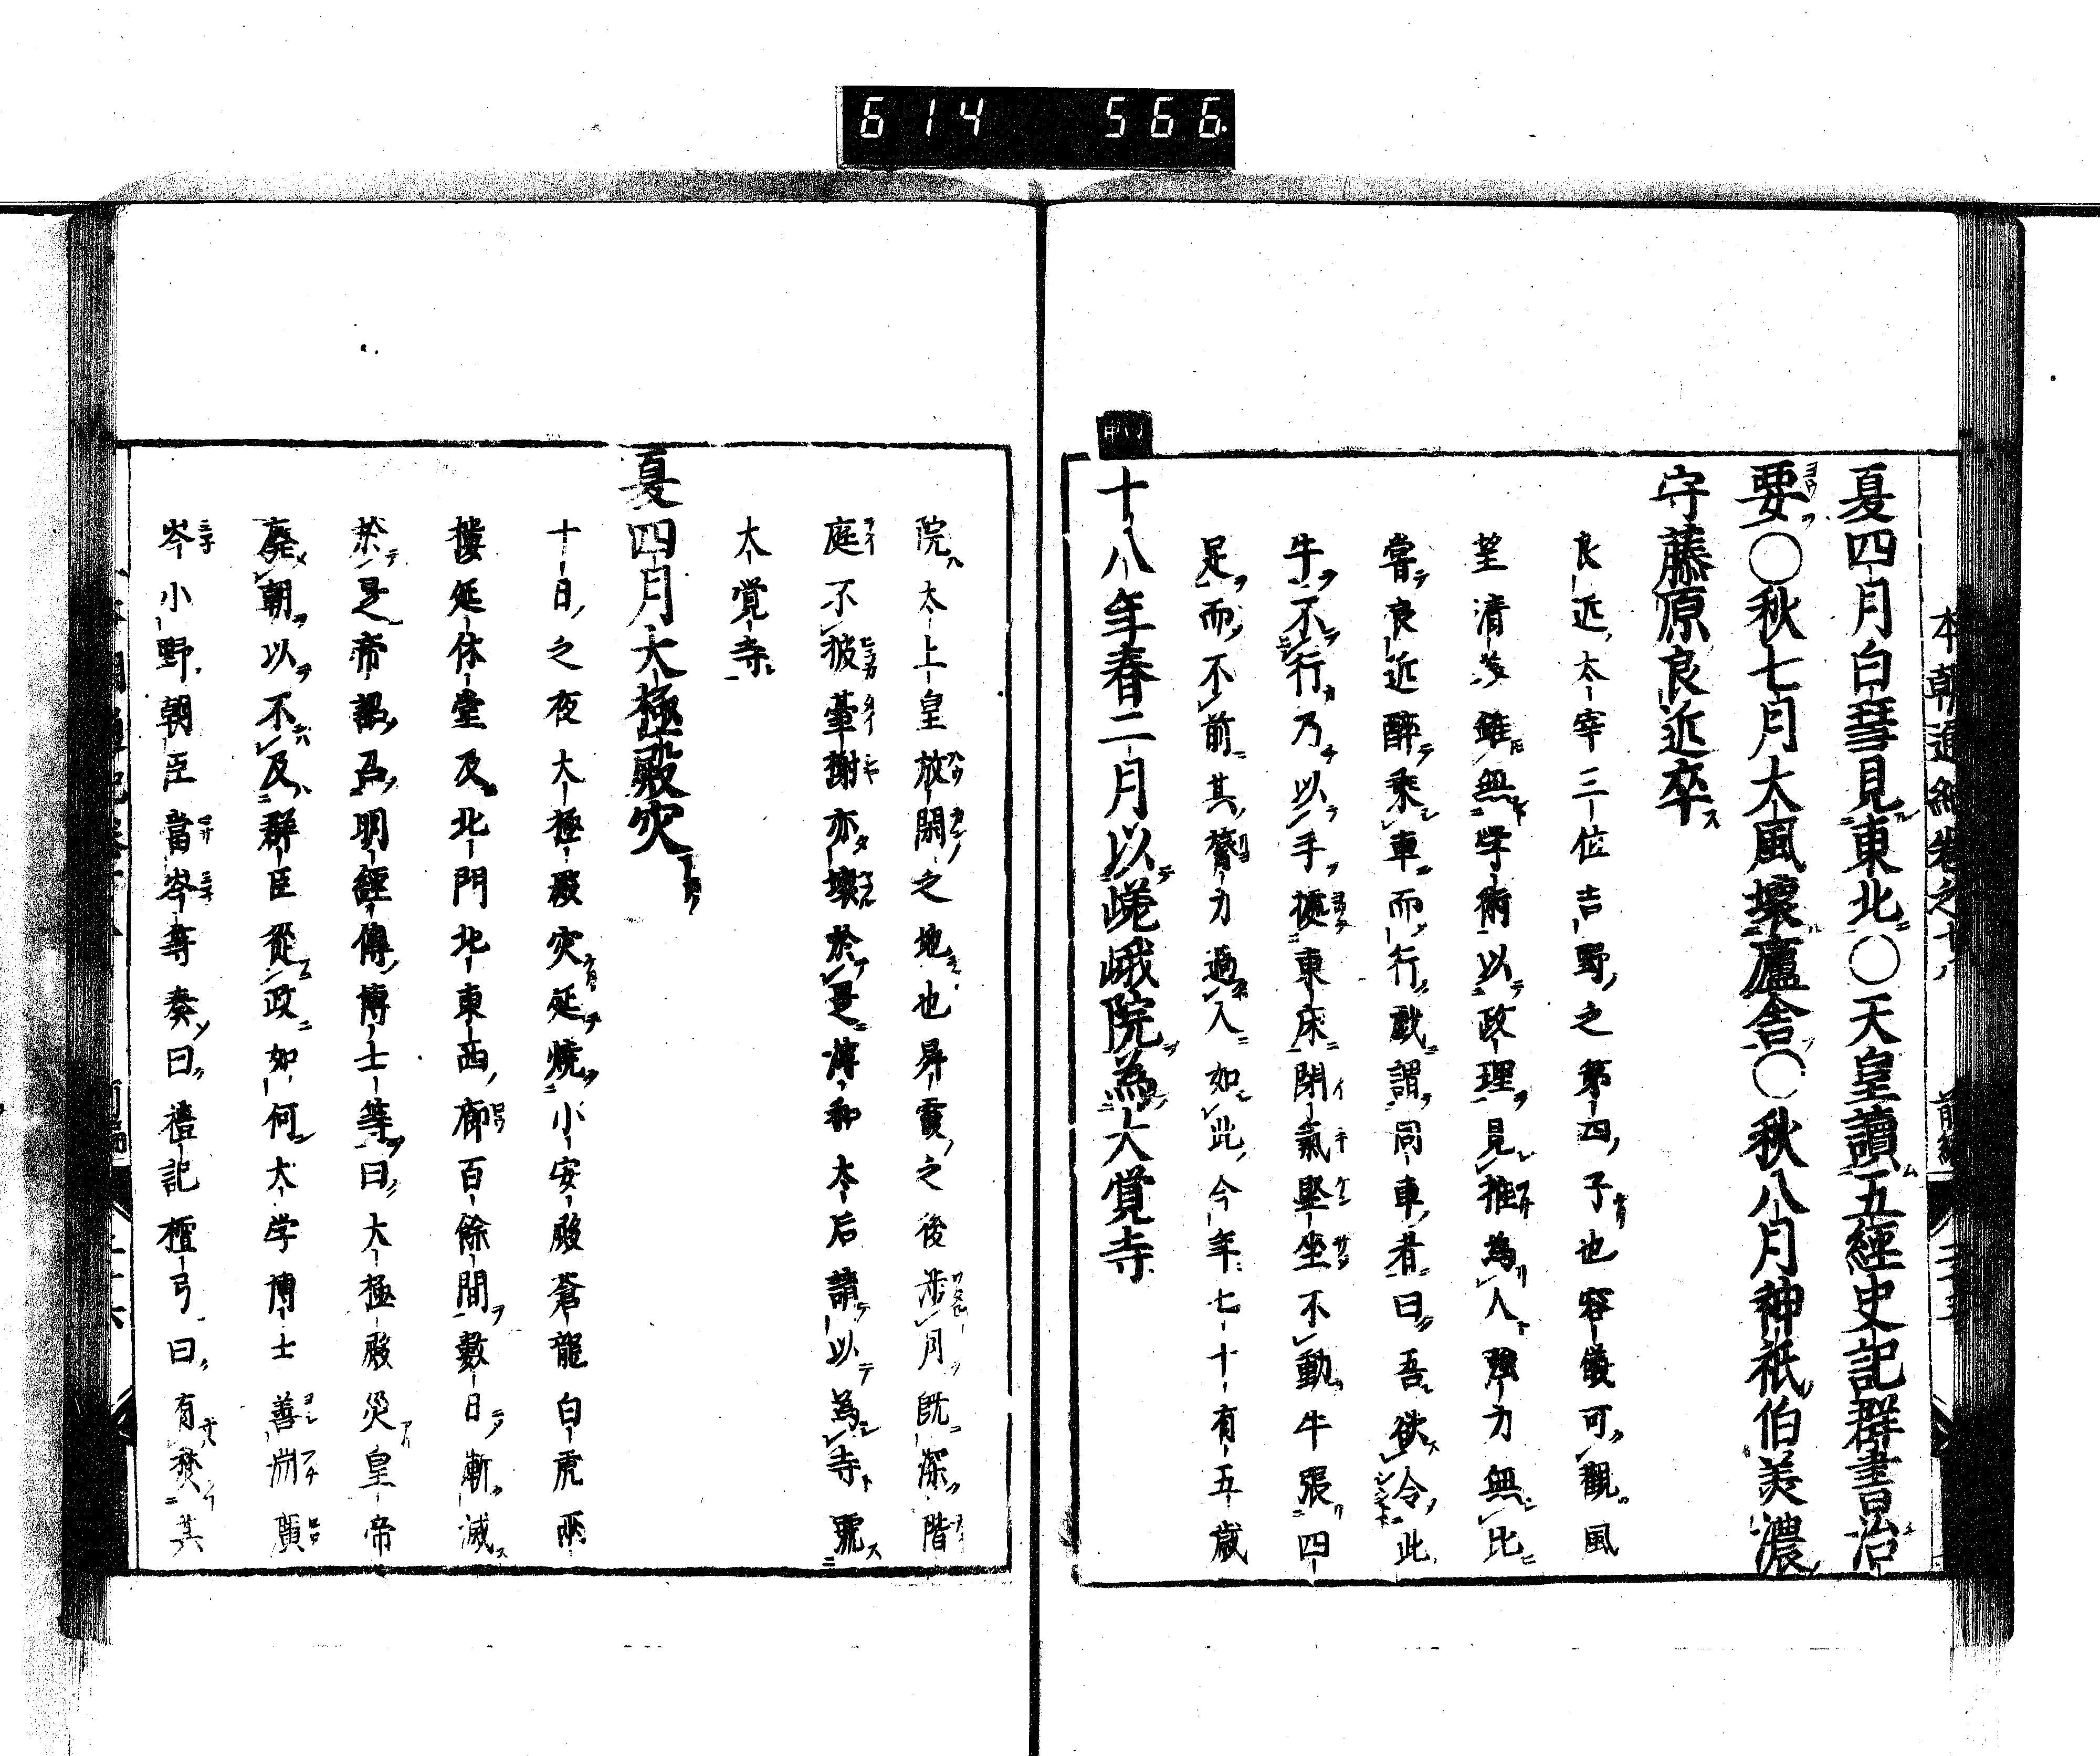 614 566
夏四月白彗見東北○天皇讀五經史記群書治
要○秋七月大風壞廬舎○秋八月神祇伯美濃
守藤原良近卒
良近太宰三位吉野之第四子也容儀可觀風
望清美雖無学術以政理見推為人強力無比
嘗良近醉乘車而行戯謂同車者曰吾欲令此
牛不行乃以手據東床閉氣堅坐不動牛張四
足而不前其膂力過人如此今年七十有五歳
十八年春二月以嵯峨院為大覚寺
院太上皇放閑之地也昇霞之後渉月既深階
庭不披臺榭亦壊於是淳和太后請以為寺號
大覚寺
夏四月大極殿灾
十日之夜大極殿灾延焼小安殿蒼龍白虎兩
樓延休堂及北門北東西廊百餘間數日漸滅
於是帝詔召明經傳博士等曰大極殿災皇帝
廃朝以不及群臣從政如何大学博士善淵廣
岑小野朝臣當岑等奏曰禮記檀弓曰有焚其